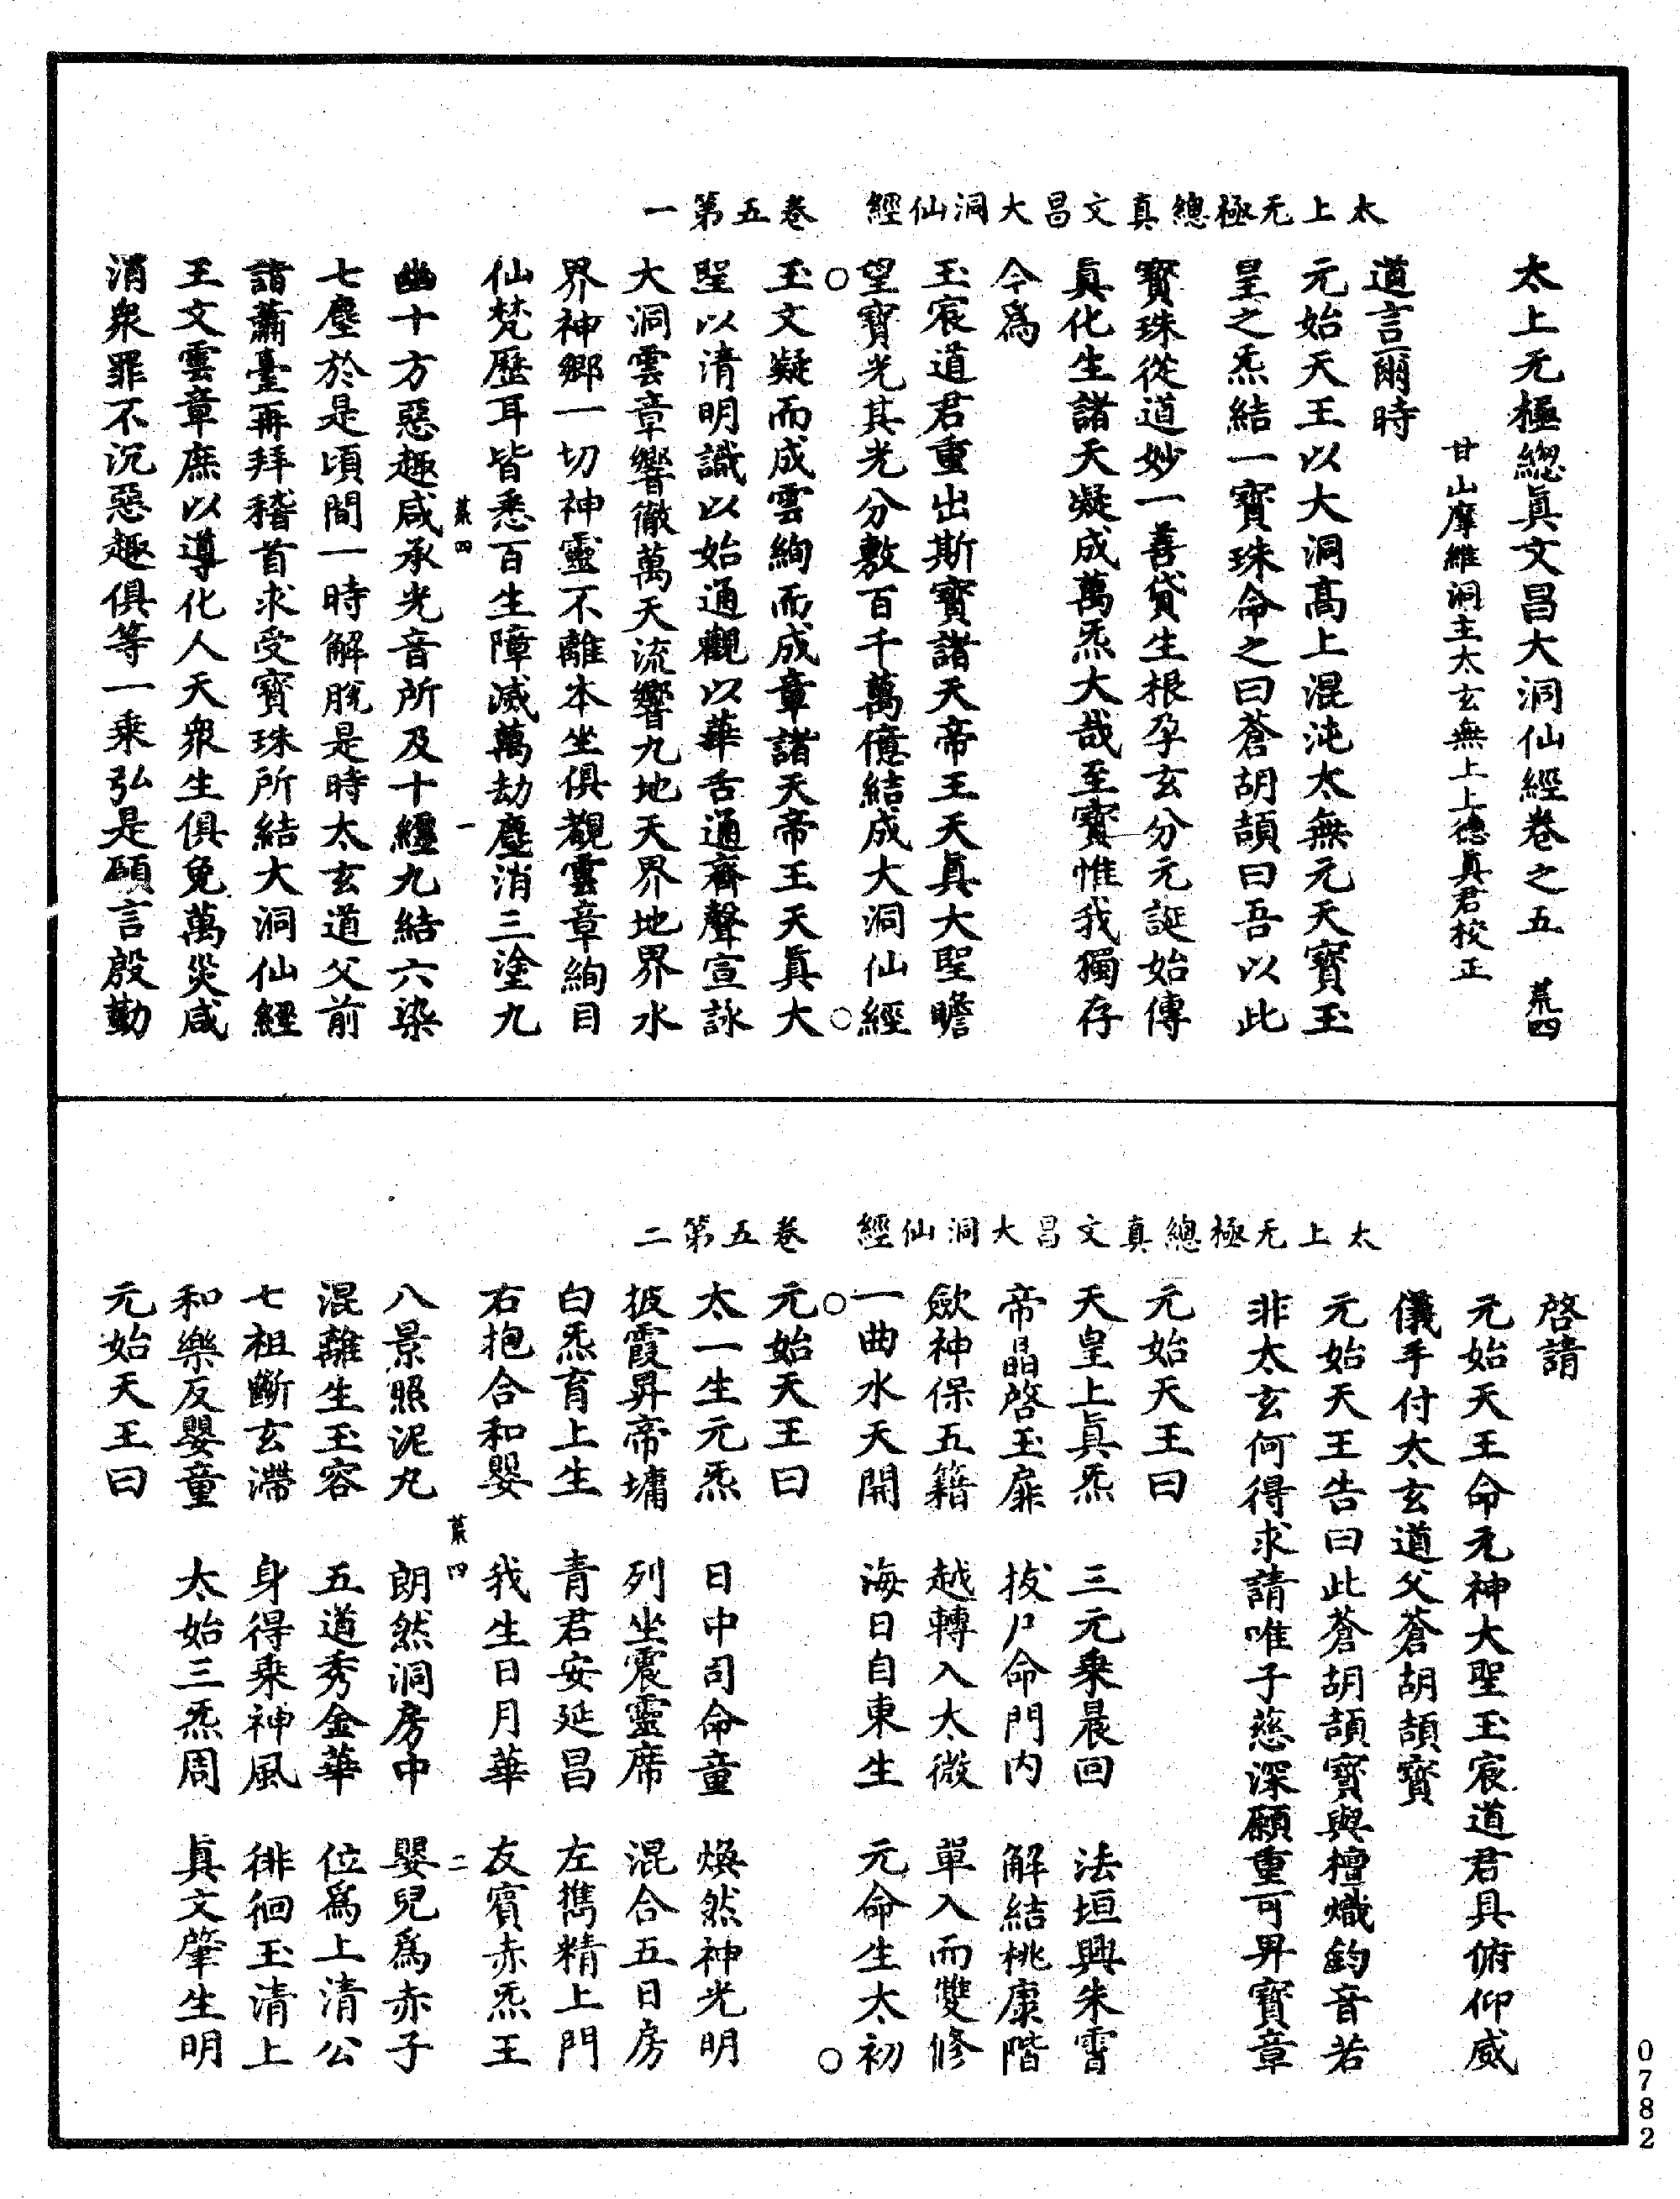 太上无極總真文昌大洞仙經　卷五第一
太上无極總眞文昌大洞仙經卷之五　荒四
甘山摩維洞主太玄無上上德真君校正
道言爾時
元始天王以大洞高上混沌太無元天寶玉
皇之炁結一寶珠命之曰蒼胡頡曰吾以此
寶珠從道妙一善貸生根孕玄分元誕始傳
眞化生諸天凝成萬炁大哉至寶惟我獨存
今爲
玉宸道君重出斯寶諸天帝王天眞大聖瞻
望寶光其光分敷百千萬億結成大洞仙經
玉文凝而成雲絢而成章諸天帝王天眞大
聖以清明識以始通觀以華舌通齊聲宣詠
大洞雲章響徹萬天流響九地天界地界水
界神鄉一切神靈不離本坐俱觀雲章絢目
仙梵歷耳皆悉百生障滅萬劫塵消三塗九
荒四　一
幽十方惡趣咸承光音所及十纏九結六染
七塵於是頃間一時解脫是時太玄道父前
詣蕭臺再拜稽首求受寶珠所結大洞仙經
王文雲章庶以導化人天衆生俱免萬災咸
消衆罪不沉惡趣俱等一乘弘是願言殷勤
太上无極總真文昌大洞仙經　卷五第二
啓請
元始天王命元神大聖玉宸道君具俯仰威
儀手付太玄道父蒼胡頡寶
元始天王告曰此蒼胡頡寶與檀熾鈞音若
非太玄何得求請唯子慈深願重可畀寶章
元始天王曰
天皇上眞炁　三元乘晨回　法垣興朱霄
帝晶啓玉扉　拔尸命門内　解結桃康階
歛神保五籍　越轉入太微　單入而雙修
一曲水天開　海日自東生　元命生太初
元始天王曰
太一生元炁　日中司命童　煥然神光明
披霞昇帝墉　列坐震靈席　混合五日房
白炁育上生　青君安延昌　左雋精上門
右抱合和嬰　我生日月華　友賓赤炁王
荒四　二
八景照泥丸　朗然洞房中　嬰兒爲赤子
混離生玉容　五道秀金華　位爲上清公
七祖斷玄滯　身得乘神風　徘徊玉清上
和樂反嬰童　太始三炁周　眞文肇生明
元始天王曰
0782